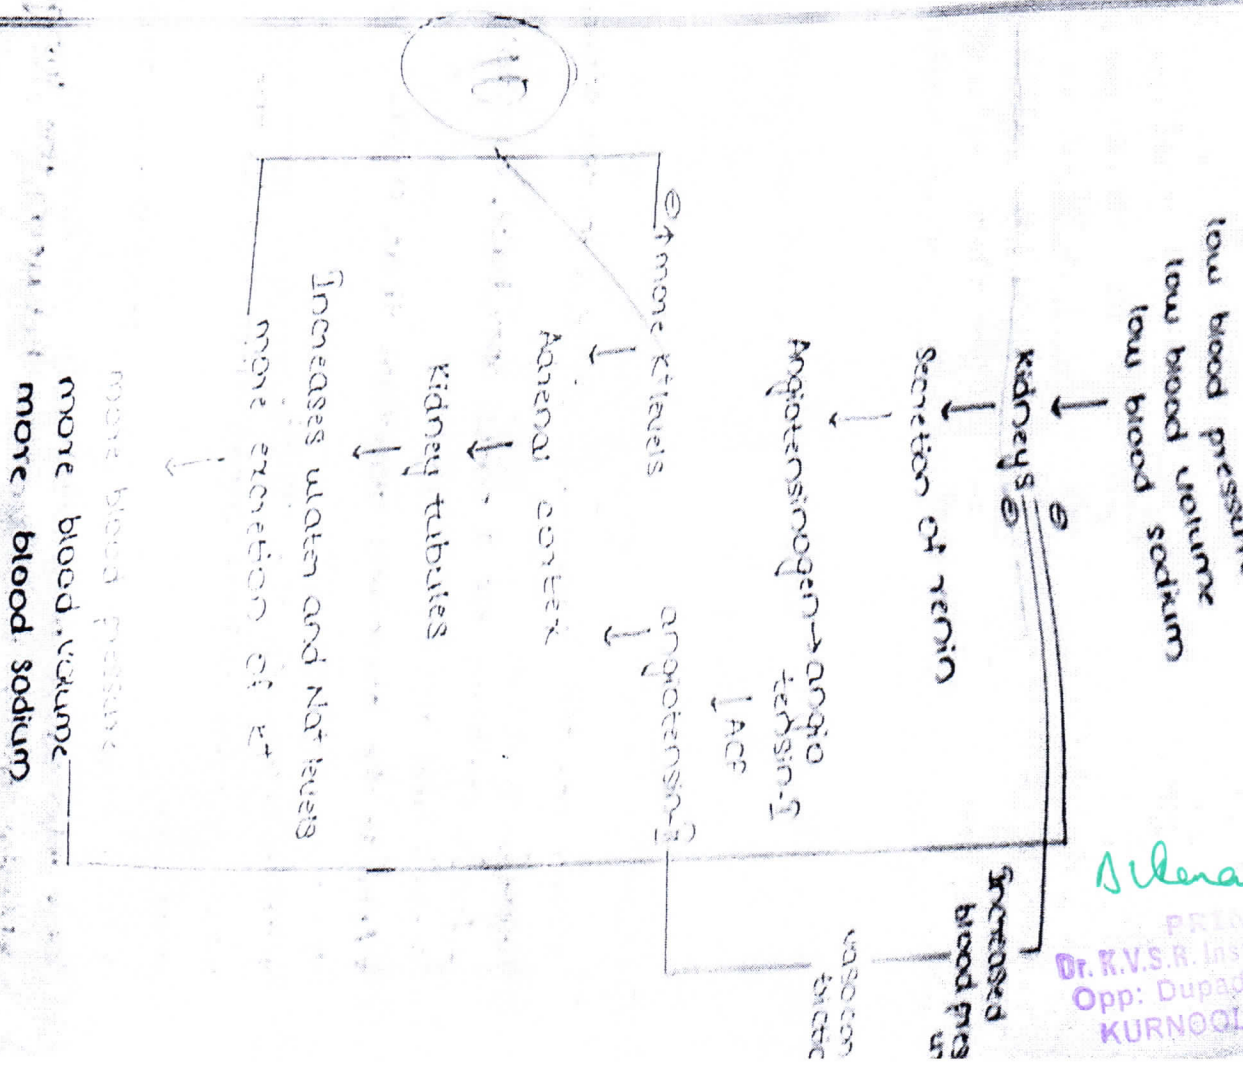 low blood
low blood volume
low blood sodium
kidneys
secretion of renin
Angiotensinogen → angio
tensin-I
↓ ACE
↑ more K+ levels
angiotensin-II
Adrenal cortex
Kidney tubules
Increases water and Na+ levels
more excretion of K+
more blood pressure
more blood volume
more blood sodium
Increased
blood
Dr. K.V.S.R.
Opp:
KURNOOL